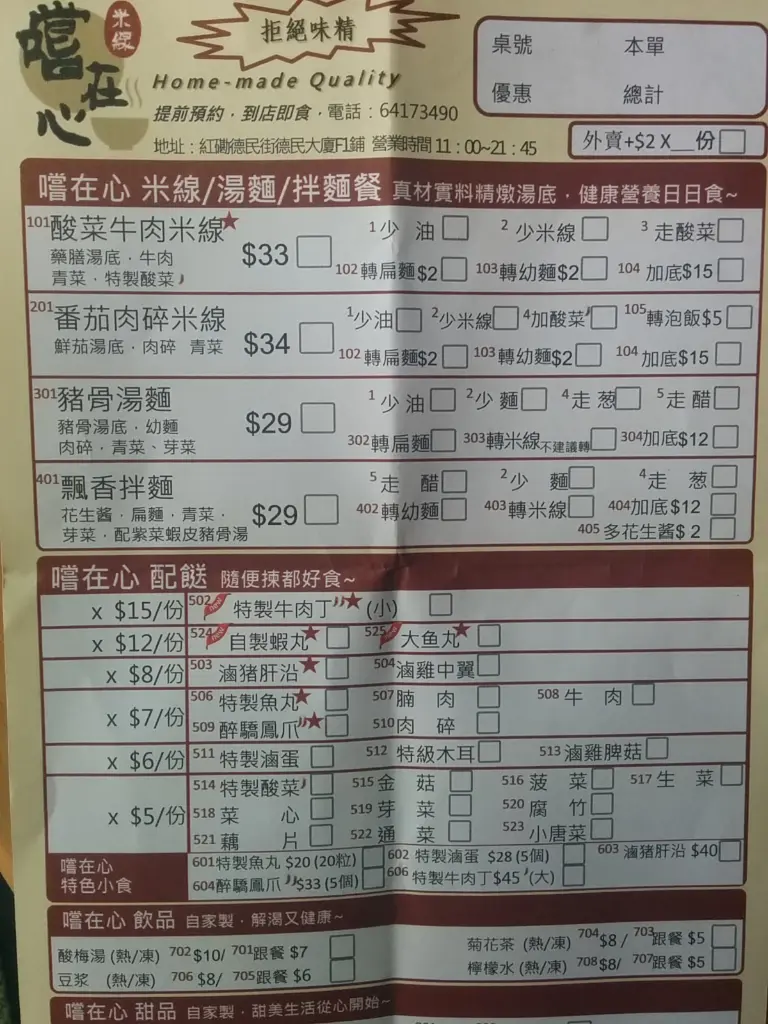 嚐在心 米線
拒絕味精
Home-made Quality
提前預約，到店即食，電話：64173490
地址：紅磡德民街德民大廈F1鋪 營業時間11：00~21：45
桌號 本單
優惠 總計
外賣+$2 X__份
嚐在心 米線/湯麵/拌麵餐 真材實料精燉湯底．健康營養日日食~
101酸菜牛肉米線★ $33
藥膳湯底．牛肉
青菜．特製酸菜
1少 油 2少米線 3走酸菜
102轉扁麵$2 103轉幼麵$2 104加底$15
201番茄肉碎米線 $34
鮮茄湯底．肉碎 青菜
1少油 2少米線 4加酸菜 105轉泡飯$5
102轉扁麵$2 103轉幼麵$2 104加底$15
301豬骨湯麵 $29
豬骨湯底．幼麵
肉碎．青菜、芽菜
1少油 2少麵 4走葱 5走醋
302轉扁麵 303轉米線不建議轉 304加底$12
401飄香拌麵 $29
花生醬．扁麵．青菜．
芽菜．配紫菜蝦皮豬骨湯
5走 醋 2少 麵 4走 葱
402轉幼麵 403轉米線 404加底$12
405多花生醬$2
嚐在心 配餸 隨便揀都好食~
x $15/份 502 new 特製牛肉丁★(小)
x $12/份 524 new 自製蝦丸★ 525 new 大鱼丸★
x $8/份 503滷猪肝沿★ 504滷雞中翼
x $7/份 506特製魚丸★ 507腩 肉 508牛 肉
509醉驕鳳爪★ 510肉 碎
x $6/份 511特製滷蛋 512特級木耳 513滷雞脾菇
x $5/份 514特製酸菜 515金 菇 516菠 菜 517生 菜
518菜 心 519芽 菜 520腐 竹
521藕 片 522通 菜 523小唐菜
嚐在心
特色小食
601特製魚丸 $20 (20粒) 602特製滷蛋 $28 (5個) 603滷猪肝沿 $40
604醉驕鳳爪 $33 (5個) 606特製牛肉丁$45 (大)
嚐在心 飲品 自家製．解渴又健康~
酸梅湯 (熱/凍) 702$10/ 701跟餐 $7 菊花茶 (熱/凍) 704$8 / 703跟餐 $5
豆浆 (熱/凍) 706 $8/ 705跟餐 $6 檸檬水 (熱/凍) 708$8/ 707跟餐 $5
嚐在心 甜品 自家製．甜美生活從心開始~